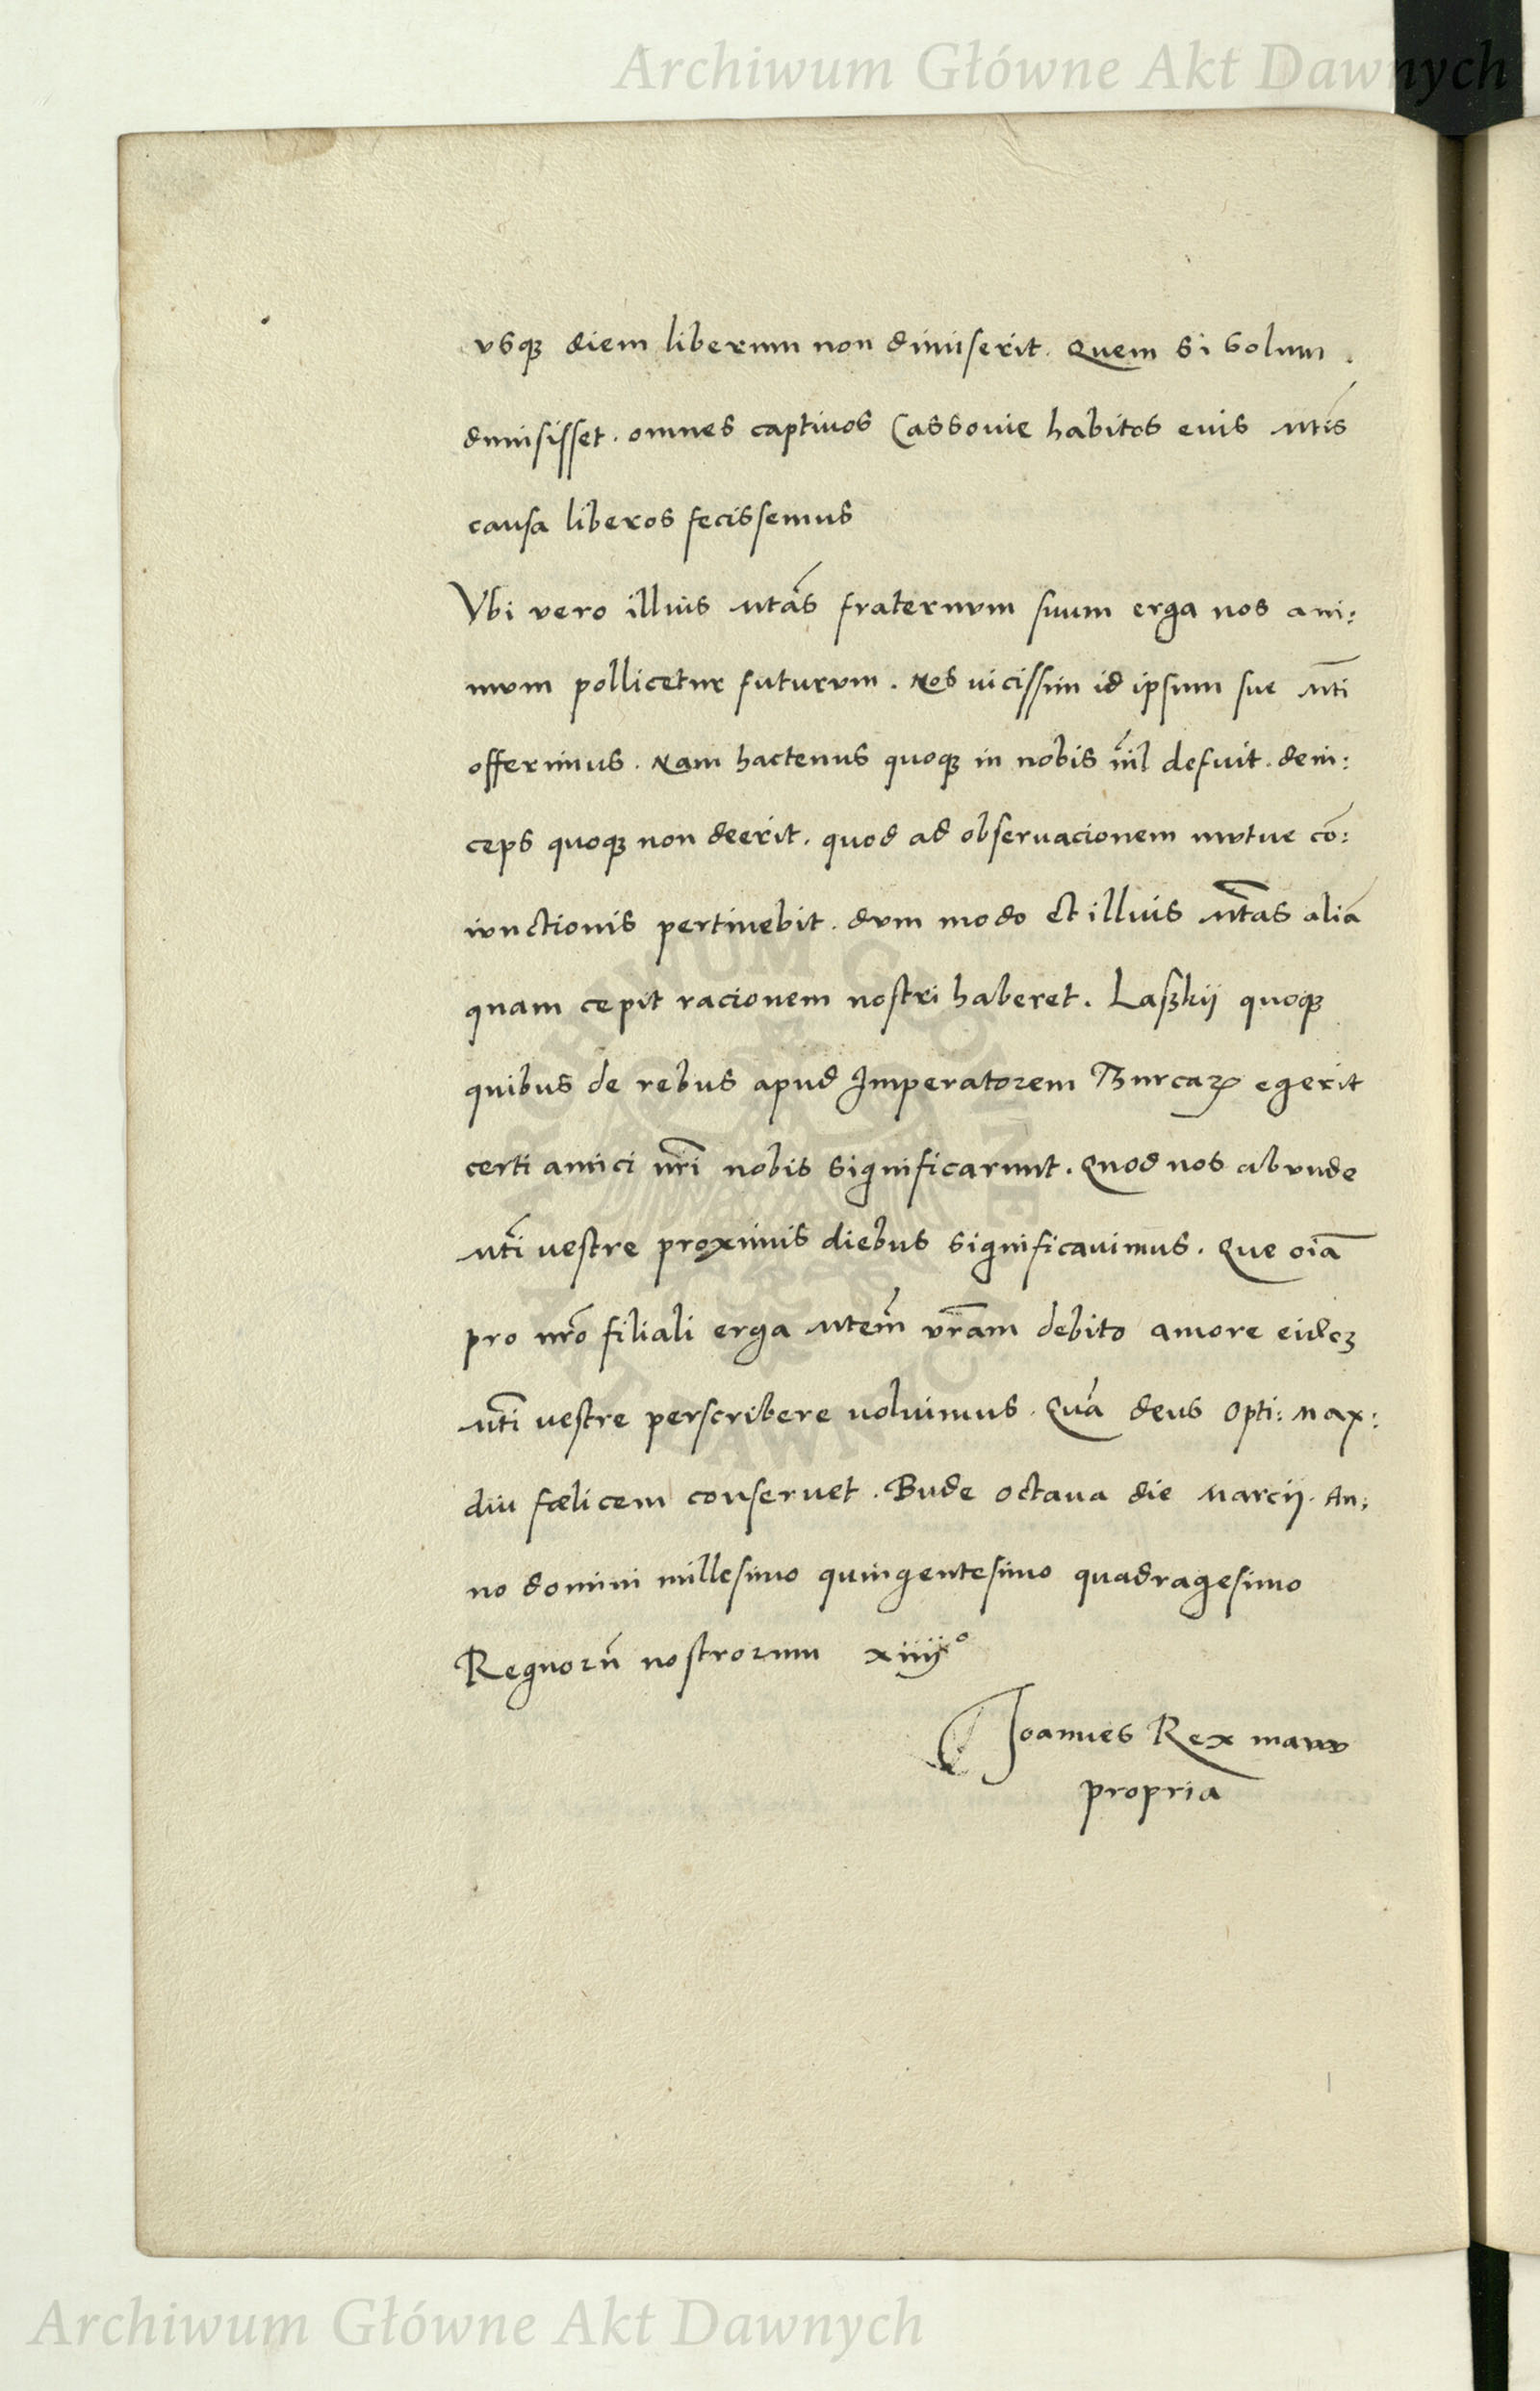 Archiwum Główne Akt Dawnych
vsqꝫ diem liberum non dimiserit. Quem si solum.
dimisisset. omnes captiuos Cassouie habitos euis Mtis
causa liberos fecissemus
Vbi vero illius Mtãs fraternum suum erga nos ani:
mum pollicetur futurum. Nos uicissim id ipsum sue Mti
offerimus. Nam hactenus quoqꝫ in nobis nĩl defuit. dein:
ceps quoqꝫ non deerit. quod ad obseruacionem mutue cõ:
iunctionis pertinebit. dum modo et illius Mtas aliã
quam cepit racionem nostri haberet. Laßkij quoqꝫ
quibus de rebus apud Imperatorem Thurcaꝝ egerit
certi amici nr̃i nobis significarunt. Quod nos abunde
Mti vestre proximis diebus significauimus. Que oĩa
pro nr̃o filiali erga Mtem̃ vr̃am debito amore eidẽꝫ
Mti vestre perscribere voluimus. Quã deus Opti: Max:
diu fœlicem conseruet. Bude octaua die Marcij. An:
no domini millesimo quingentesimo quadragesimo
Regnorũ nostrorum xiiij°
Joannes Rex manu
propria
ARCHIWUM GŁÓWNE AKT DAWNYCH
Archiwum Główne Akt Dawnych